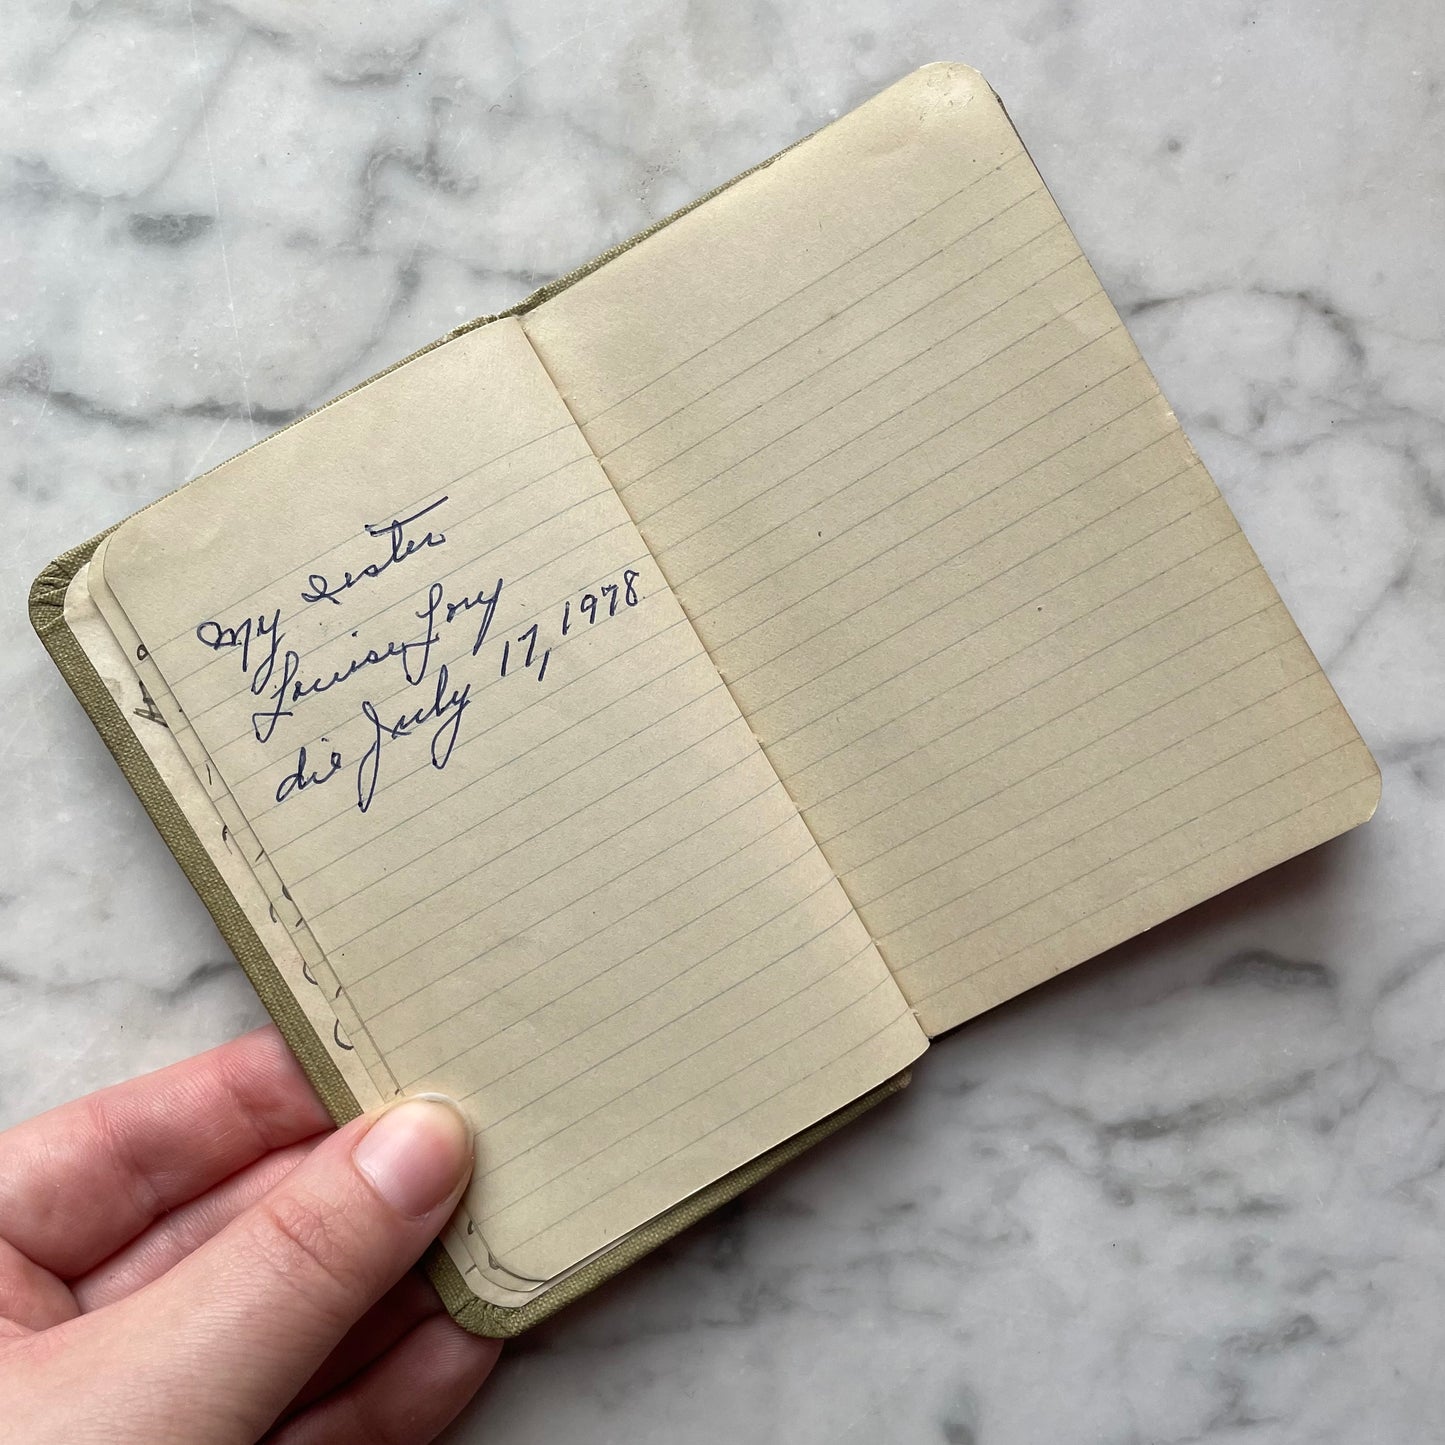 My sister
Louise Lory
die July 17, 1978